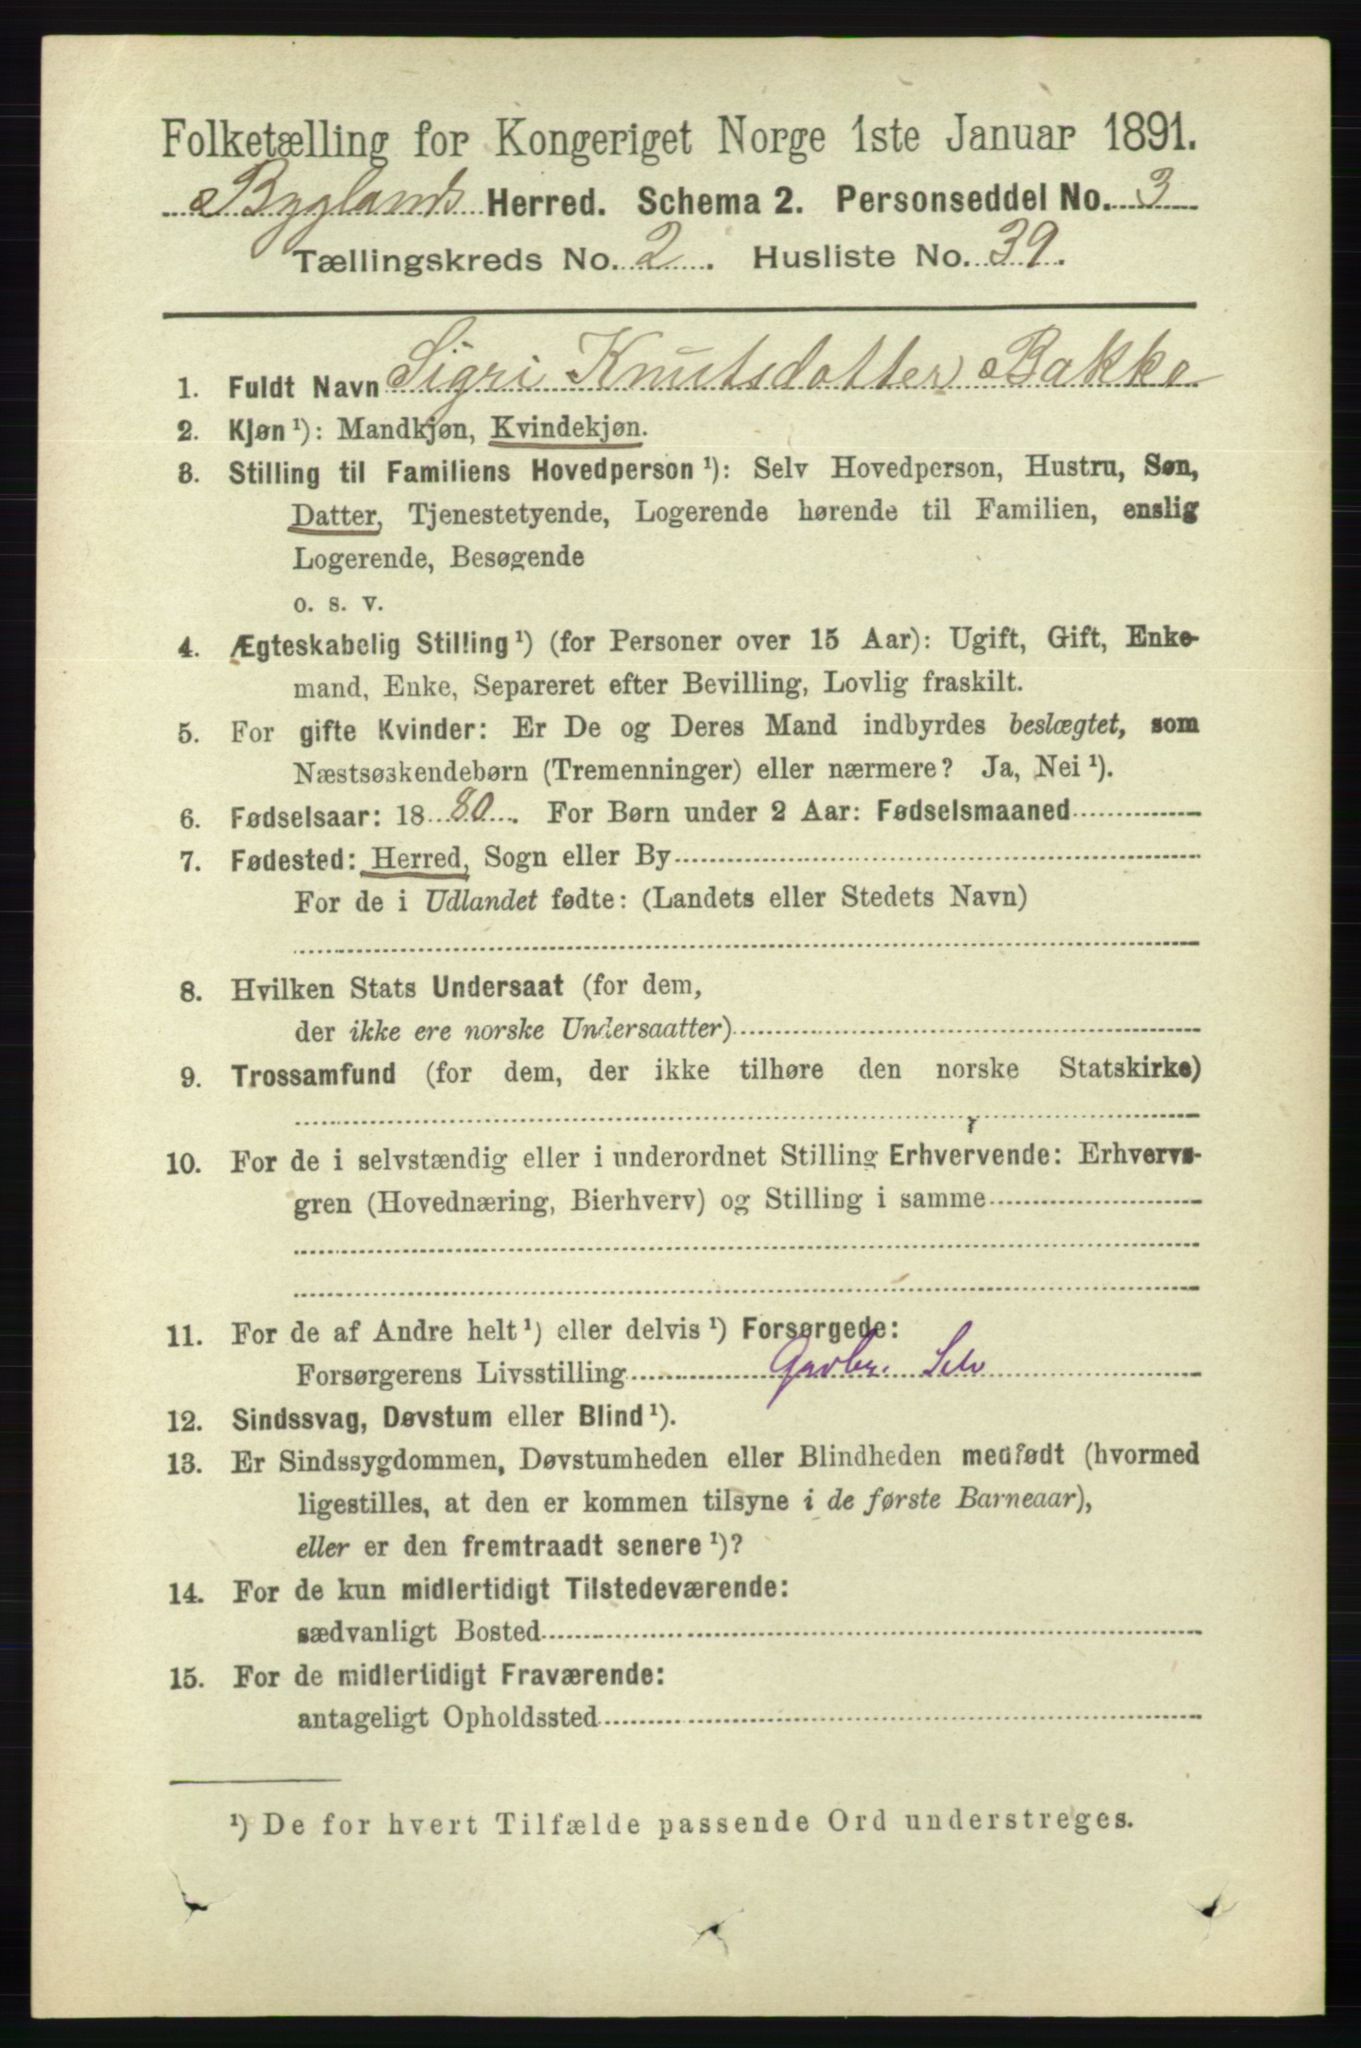 Folketælling for Kongeriget Norge 1ste Januar 1891.
Byglands Herred. Schema 2. Personseddel No. 3
Tællingskreds No. 2. Husliste No. 39.
1. Fuldt Navn Sigri Knutsdatter Bakke
2. Kjøn ¹): Mandkjøn, Kvindekjøn.
3. Stilling til Familiens Hovedperson ¹): Selv Hovedperson, Hustru, Søn,
Datter, Tjenestetyende, Logerende hørende til Familien, enslig
Logerende, Besøgende
o. s. v.
4. Ægteskabelig Stilling ¹) (for Personer over 15 Aar): Ugift, Gift, Enke-
mand, Enke, Separeret efter Bevilling, Lovlig fraskilt.
5. For gifte Kvinder: Er De og Deres Mand indbyrdes beslægtet, som
Næstsøskendebørn (Tremenninger) eller nærmere? Ja, Nei ¹).
6. Fødselsaar: 1880. For Børn under 2 Aar: Fødselsmaaned
7. Fødested: Herred, Sogn eller By
For de i Udlandet fødte: (Landets eller Stedets Navn)
8. Hvilken Stats Undersaat (for dem,
der ikke ere norske Undersaatter)
9. Trossamfund (for dem, der ikke tilhøre den norske Statskirke)
10. For de i selvstændig eller i underordnet Stilling Erhvervende: Erhvervs-
gren (Hovednæring, Bierhverv) og Stilling i samme
11. For de af Andre helt ¹) eller delvis ¹) Forsørgede:
Forsørgerens Livsstilling Garbr. Selv
12. Sindssvag, Døvstum eller Blind ¹).
13. Er Sindssygdommen, Døvstumheden eller Blindheden medfødt (hvormed
ligestilles, at den er kommen tilsyne i de første Barneaar),
eller er den fremtraadt senere ¹)?
14. For de kun midlertidigt Tilstedeværende:
sædvanligt Bosted
15. For de midlertidigt Fraværende:
antageligt Opholdssted
¹) De for hvert Tilfælde passende Ord understreges.